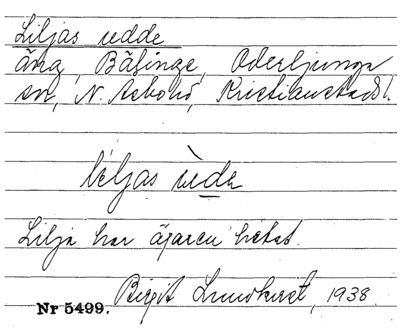 Liljas udde
äng, Bälinge, Oderljunga
sn, N. Åsbohd, Kristianstads l.
léljas ùde
Lilja har ägaren hetat.
Birgit Lundkvist, 1938
Nr 5499.